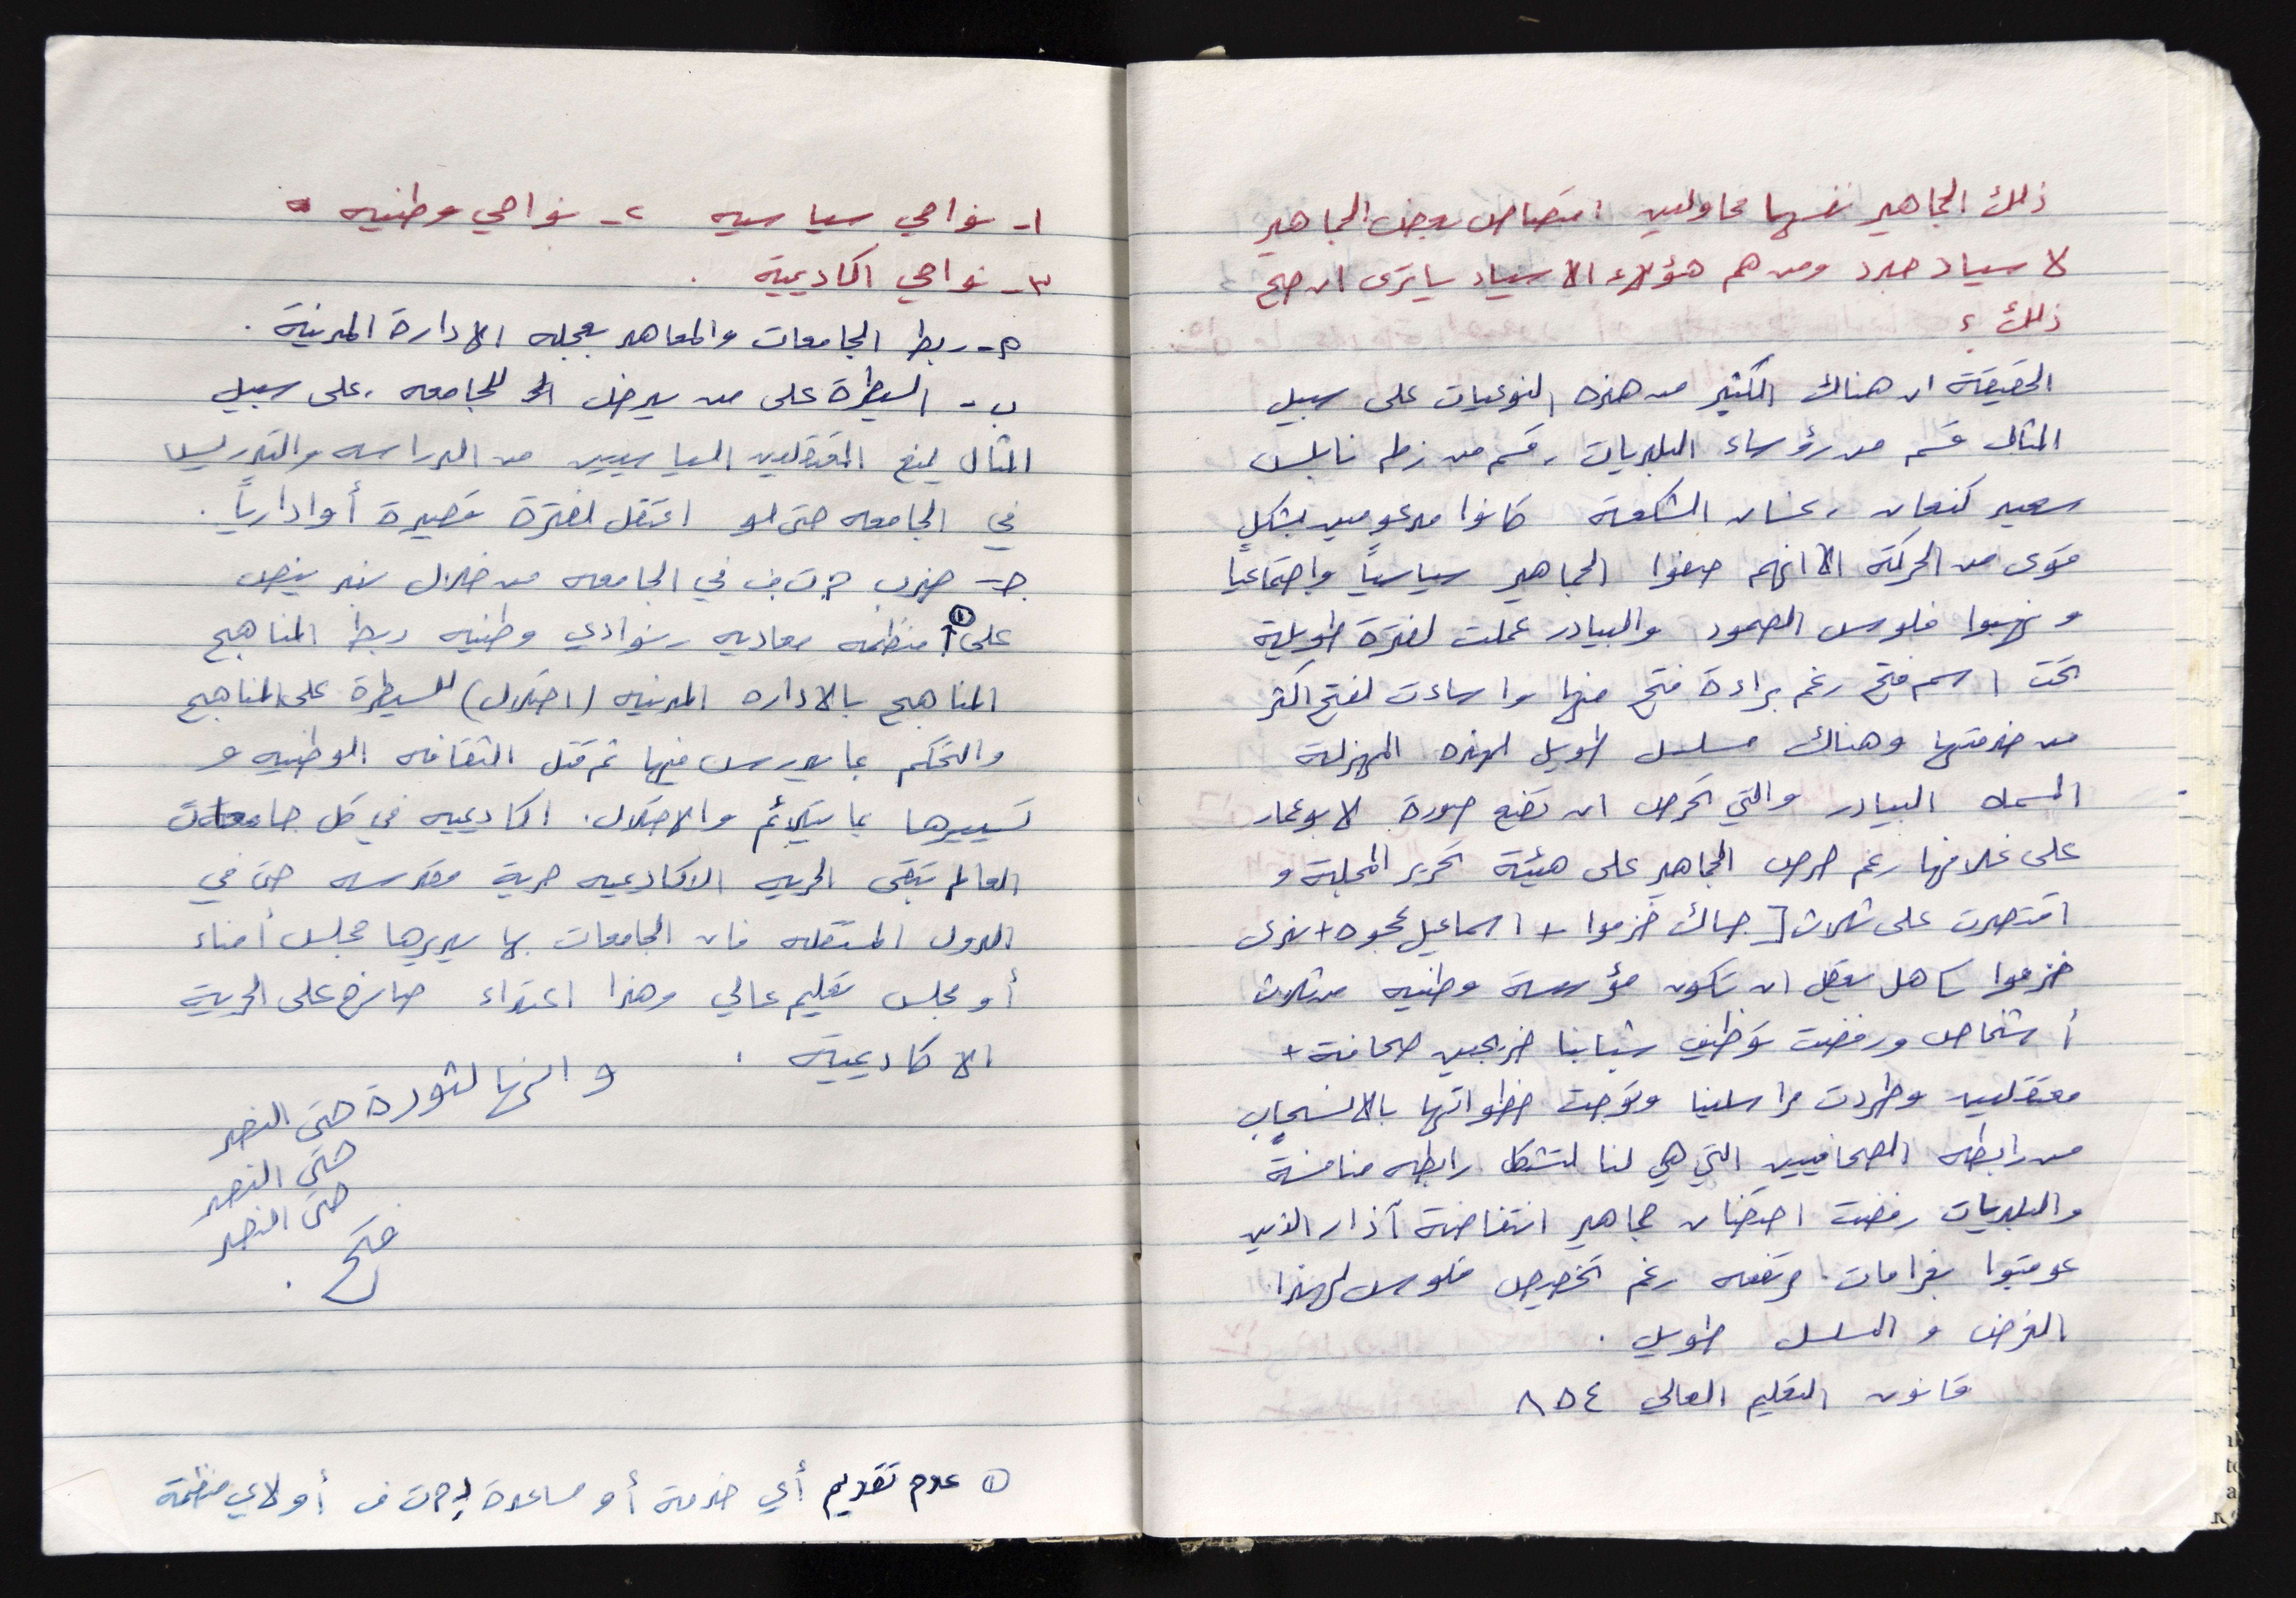 ذلك الجماهير نفسها محاولين امتصاص بعض الجماهير
لاسياد جدد ومن هم هؤلاء الاسياد يا ترى ان صح
ذلك ؟
الحقيقة ان هناك الكثير من هذه النوعيات على سبيل
المثال قسم من رؤساء البلديات ، قسم من زلم نابلس
سعيد كنعان ، غسان الشكعة كانوا مدعومين بشكل
قوى من الحركة الا انهم صفوا الجماهير سياسياً واجتماعياً
ونهبوا فلوس الصمود والبيادر عملت لفترة طويلة
تحت اسم فتح رغم براءة فتح منها واساءت لفتح اكثر
من خدمتها وهناك مسلسل طويل لهذه المهزلة
المسماه البيادر والتي تحرص ان تضع صورة لابو عمار
على غلافها رغم حرص الجماهير على هيئة تحرير المجلة و
اقتصرت على ثلاث [ جاك خزموا + اسماعيل عجوه + ندى
خزموا ] هل يعقل ان تكون مؤسسة وطنيه من ثلاث
أشخاص ورفضت توظيف شبابنا خريجين صحافة +
معتقلين وطردت مراسلينا وتوجت خطواتها بالانسحاب
من رابطه الصحافيين التي هي لنا لتشكل رابطه منافسة
والبلديات رفضت احتضان جماهير انتفاضة آذار الذين
عوقبوا بغرامات مرتفعه رغم تخصيص فلوس لهذا
الغرض و المسلسل طويل .
قانون التعليم العالي ٨٥٤
١- نواحي سياسيه ٢- نواحي وطنيه
٣- نواحي اكاديمية .
أ- ربط الجامعات والمعاهد بعجله الادارة المدنية .
ب - السيطرة على من يدخل للجامعه ، على سبيل
المثال يمنع المعتقلين السياسيين من الدراسه والتدريس
في الجامعه حتى لو اعتقل لفترة قصيرة أو ادارياً .
جـ - ضرب م ت ف في الجامعه من خلال بند ينص
على ① منظمه معاديه ، نوادي وطنيه ربط المناهج
المناهج بالاداره المدنيه (احتلال) للسيطرة على المناهج
والتحكم بما يدرس فيها ثم قتل الثقافه الوطنيه و
تسييرها بما يتلائم والاحتلال . اكاديميه في كل جامعات
العالم تبقى الحريه الاكاديميه حرية مقدسه حتى في
الدول المستقله فان الجامعات بها يديرها مجلس أمناء
أو مجلس تعليم عالي وهذا اعتداء صارخ على الحرية
الاكاديمية .
وانها لثورة حتى النصر
حتى النصر
حتى النصر
فتح .
① عدم تقديم أي خدمة أو مساعدة لـ م ت ف أو لاي منظمة